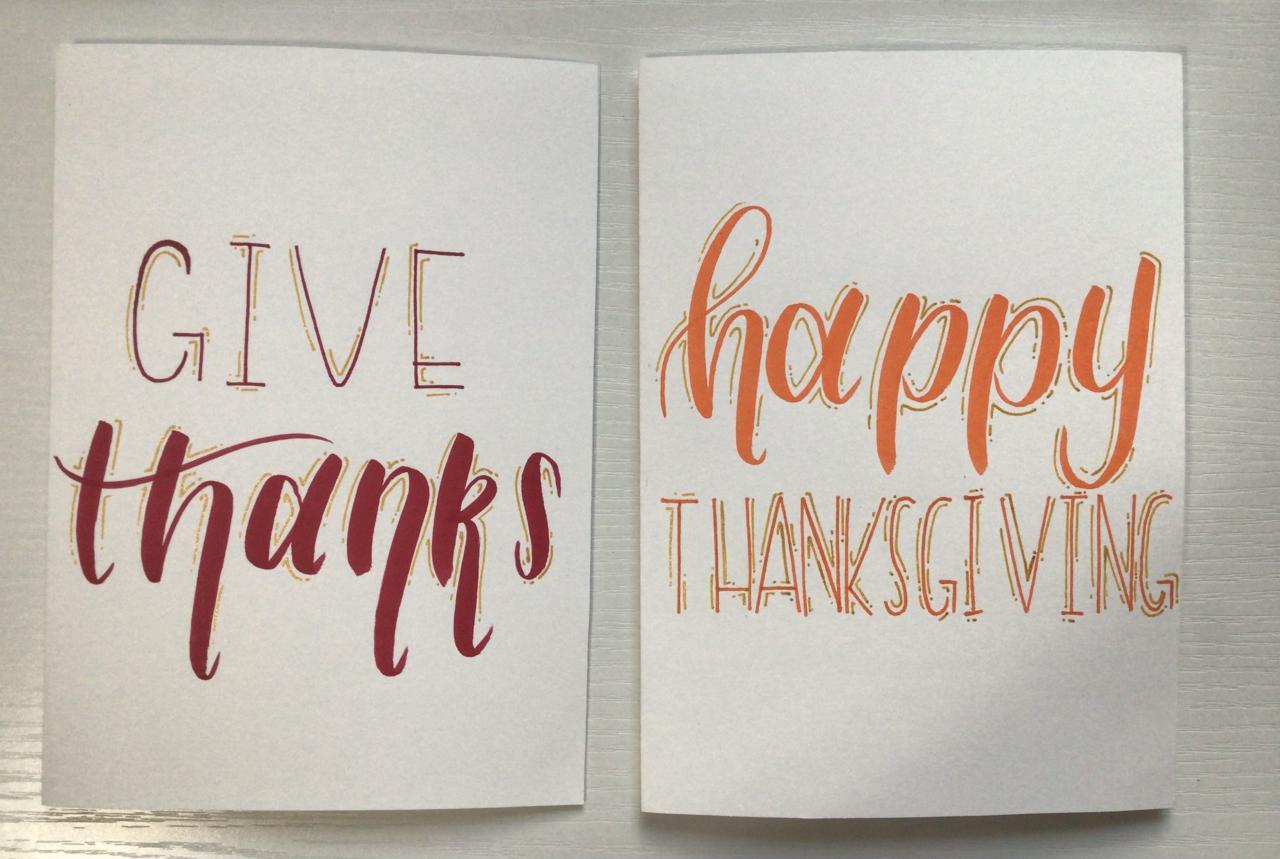 GIVE
thanks
happy
THANKSGIVING